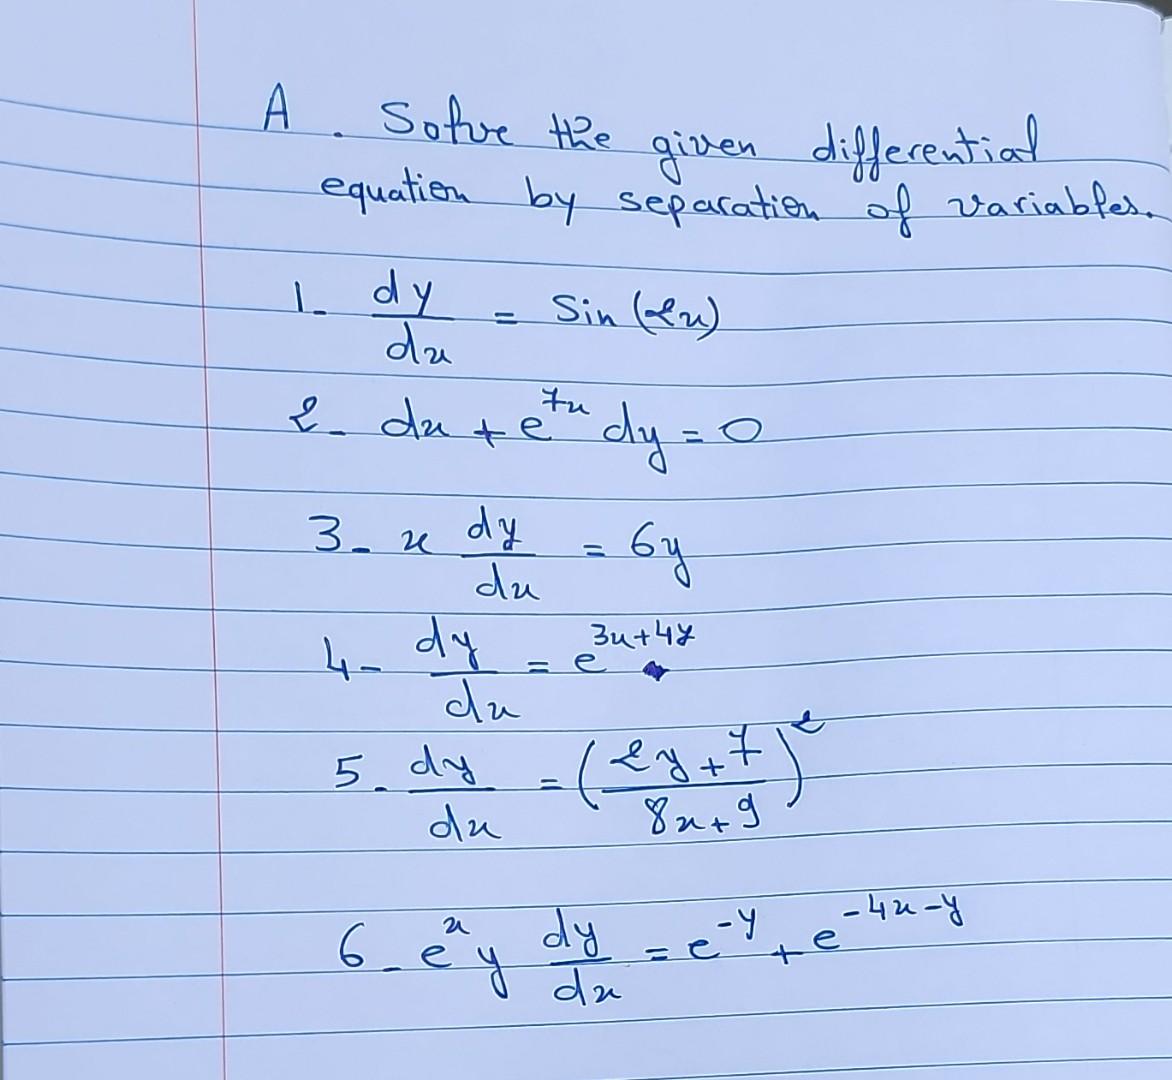 A. Solve the given differential
equation by separation of variables.
1- dy/dx = Sin (2x)
2- dx + e^{7x} dy = 0
3- x dy/dx = 6y
4- dy/dx = e^{3x+4y}
5- dy/dx = ((2y+7)/(8x+9))^2
6- e^x y dy/dx = e^{-y} + e^{-4x-y}